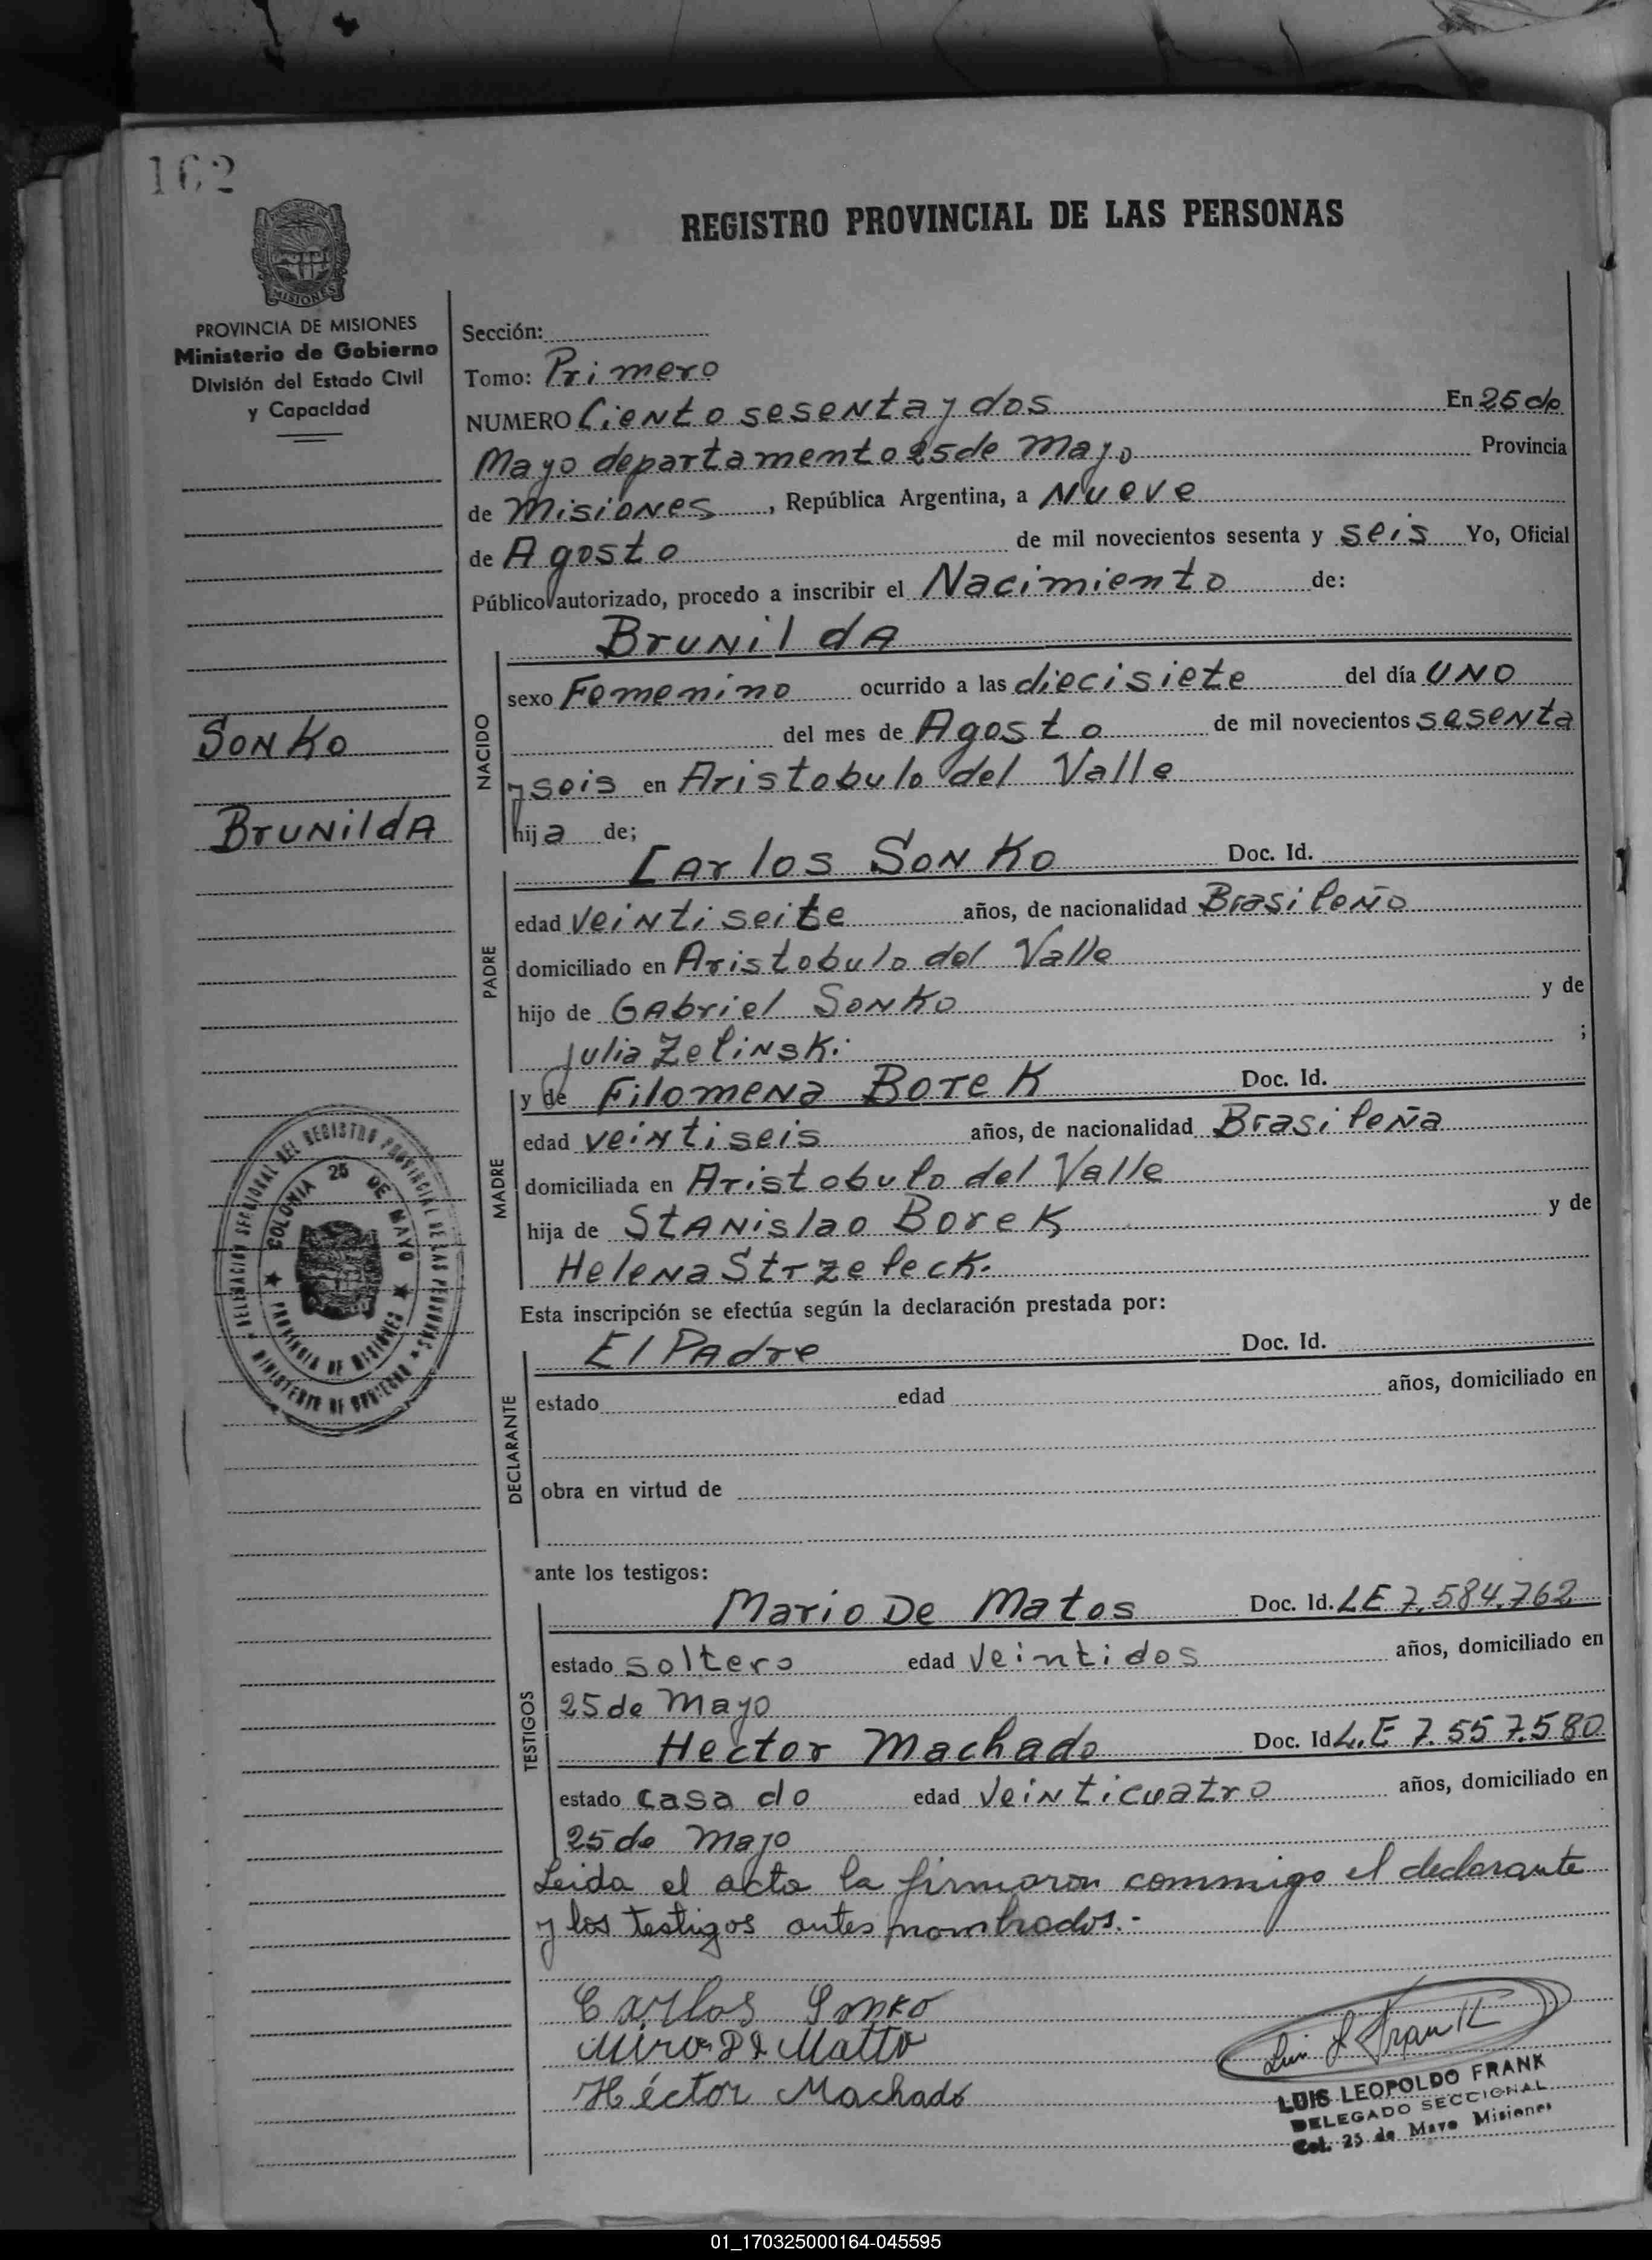 162
REGISTRO PROVINCIAL DE LAS PERSONAS
MISIONES
PROVINCIA DE MISIONES
Ministerio de Gobierno
División del Estado Civil
y Capacidad
Sonko
Brunilda
Sección:
Tomo: Primero
NUMERO Ciento sesenta y dos En 25 de
Mayo departamento 25 de Mayo Provincia
de Misiones, República Argentina, a Nueve
de Agosto de mil novecientos sesenta y seis Yo, Oficial
Público autorizado, procedo a inscribir el Nacimiento de:
Brunilda
NACIDO
sexo Femenino ocurrido a las diecisiete del día uno
del mes de Agosto de mil novecientos sesenta
y seis en Aristobulo del Valle
hija de;
Carlos Sonko Doc. Id.
PADRE
edad veintiseite años, de nacionalidad Brasileño
domiciliado en Aristobulo del Valle
hijo de Gabriel Sonko y de
Julia Zelinski ;
y de Filomena Borek Doc. Id.
MADRE
edad veintiseis años, de nacionalidad Brasileña
domiciliada en Aristobulo del Valle
hija de Stanislao Borek y de
Helena Strzeleck.
Esta inscripción se efectúa según la declaración prestada por:
El Padre Doc. Id.
DECLARANTE
estado edad años, domiciliado en
obra en virtud de
ante los testigos:
Mario De Matos Doc. Id. LE 7,584,762
TESTIGOS
estado soltero edad veintidos años, domiciliado en
25 de Mayo
Hector Machado Doc. Id L.E 7.557.580
estado casado edad veinticuatro años, domiciliado en
25 de Mayo
Leida el acta la firmaron commigo el declarante
y los testigos antes nombrados.-
Carlos Sonko
Miro De Matto
Héctor Machado
Luis L Frank
LUIS LEOPOLDO FRANK
DELEGADO SECCIONAL
Col. 25 de Mayo Misiones
DELEGACION SECCIONAL DEL REGISTRO PROVINCIAL DE LAS PERSONAS
MINISTERIO DE GOBIERNO
COLONIA 25 DE MAYO
PROVINCIA DE MISIONES
01_170325000164-045595